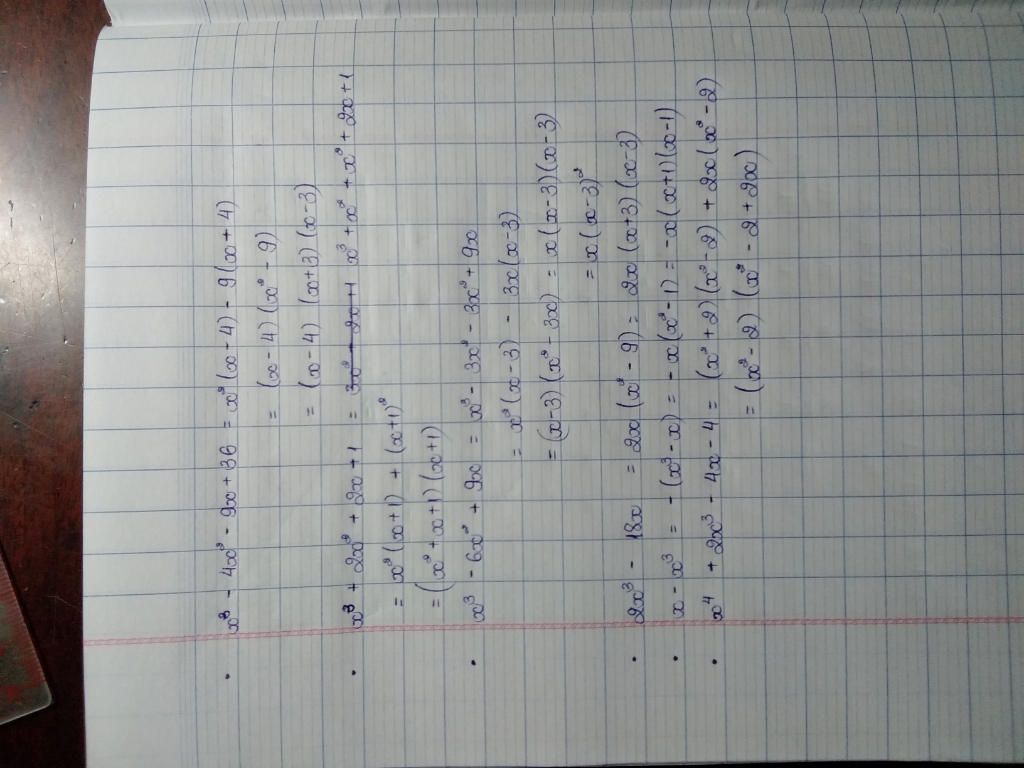 • x³ - 4x² - 9x + 36 = x²(x - 4) - 9(x + 4)
= (x - 4)(x² - 9)
= (x - 4)(x + 3)(x - 3)
• x³ + 2x² + 2x + 1 = x³ + x² + x² + 2x + 1
= x²(x + 1) + (x + 1)²
= (x² + x + 1)(x + 1)
• x³ - 6x² + 9x = x³ - 3x² - 3x² + 9x
= x²(x - 3) - 3x(x - 3)
= (x - 3)(x² - 3x) = x(x - 3)(x - 3)
= x(x - 3)²
• 2x³ - 18x = 2x(x² - 9) = 2x(x + 3)(x - 3)
• x - x³ = -(x³ - x) = -x(x² - 1) = -x(x + 1)(x - 1)
• x⁴ + 2x³ - 4x - 4 = (x² + 2)(x² - 2) + 2x(x² - 2)
= (x² - 2)(x² - 2 + 2x)